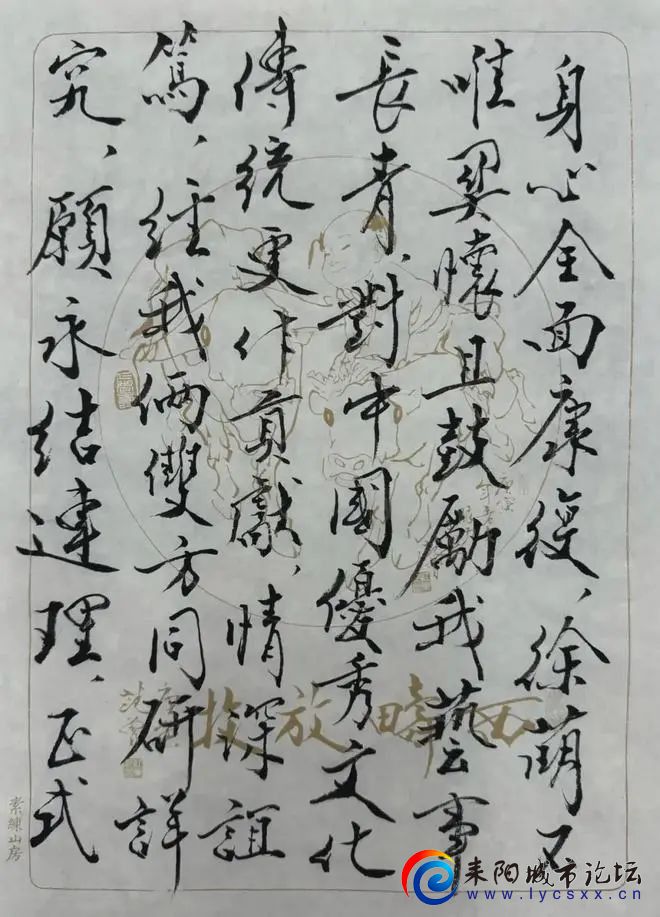 身心全面康復、徐萌又
唯異懷且鼓勵我藝事
長青、對中國優秀文化
傳統更作貢獻、情深誼
篤、經我倆雙方同研詳
究、願永結連理、正式
西疇放牧
素練山房
耒阳城市论坛
www.lycsxx.cn